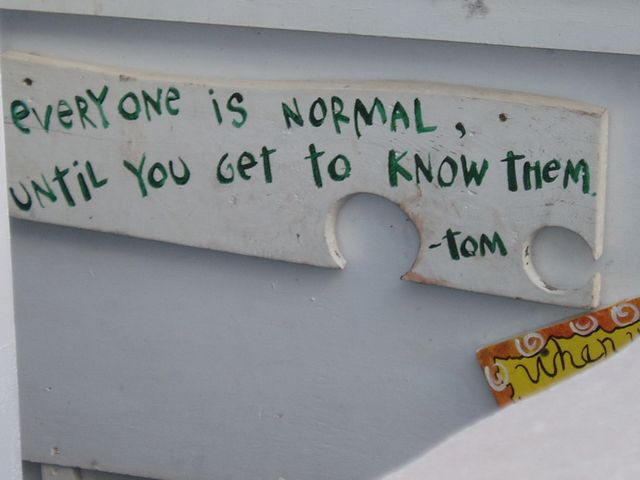 eVERYONe iS NORMAL,
UNtiL YOU Get to KNOW tHeM.
-tOM
when